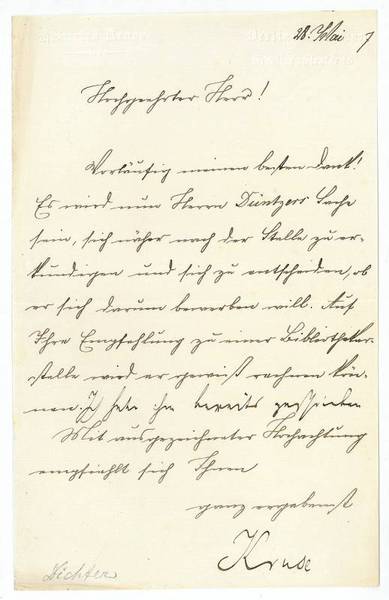 28. Mai 7
Hochgeehrter Herr!
Vorläufig meinen besten Dank!
Es wird nun Herrn Düntzers Sache
sein, sich näher nach der Stelle zu er-
kundigen und sich zu entscheiden, ob
er sich darum bewerben will. Auf
Ihre Empfehlung zu einer Bibliothekar-
stelle wird er gewiß rechnen kön-
nen. Ich habe ihm bereits geschrieben
Mit ausgezeichneter Hochachtung
empfiehlt sich Ihnen
ganz ergebenst
Kruse
Dichter